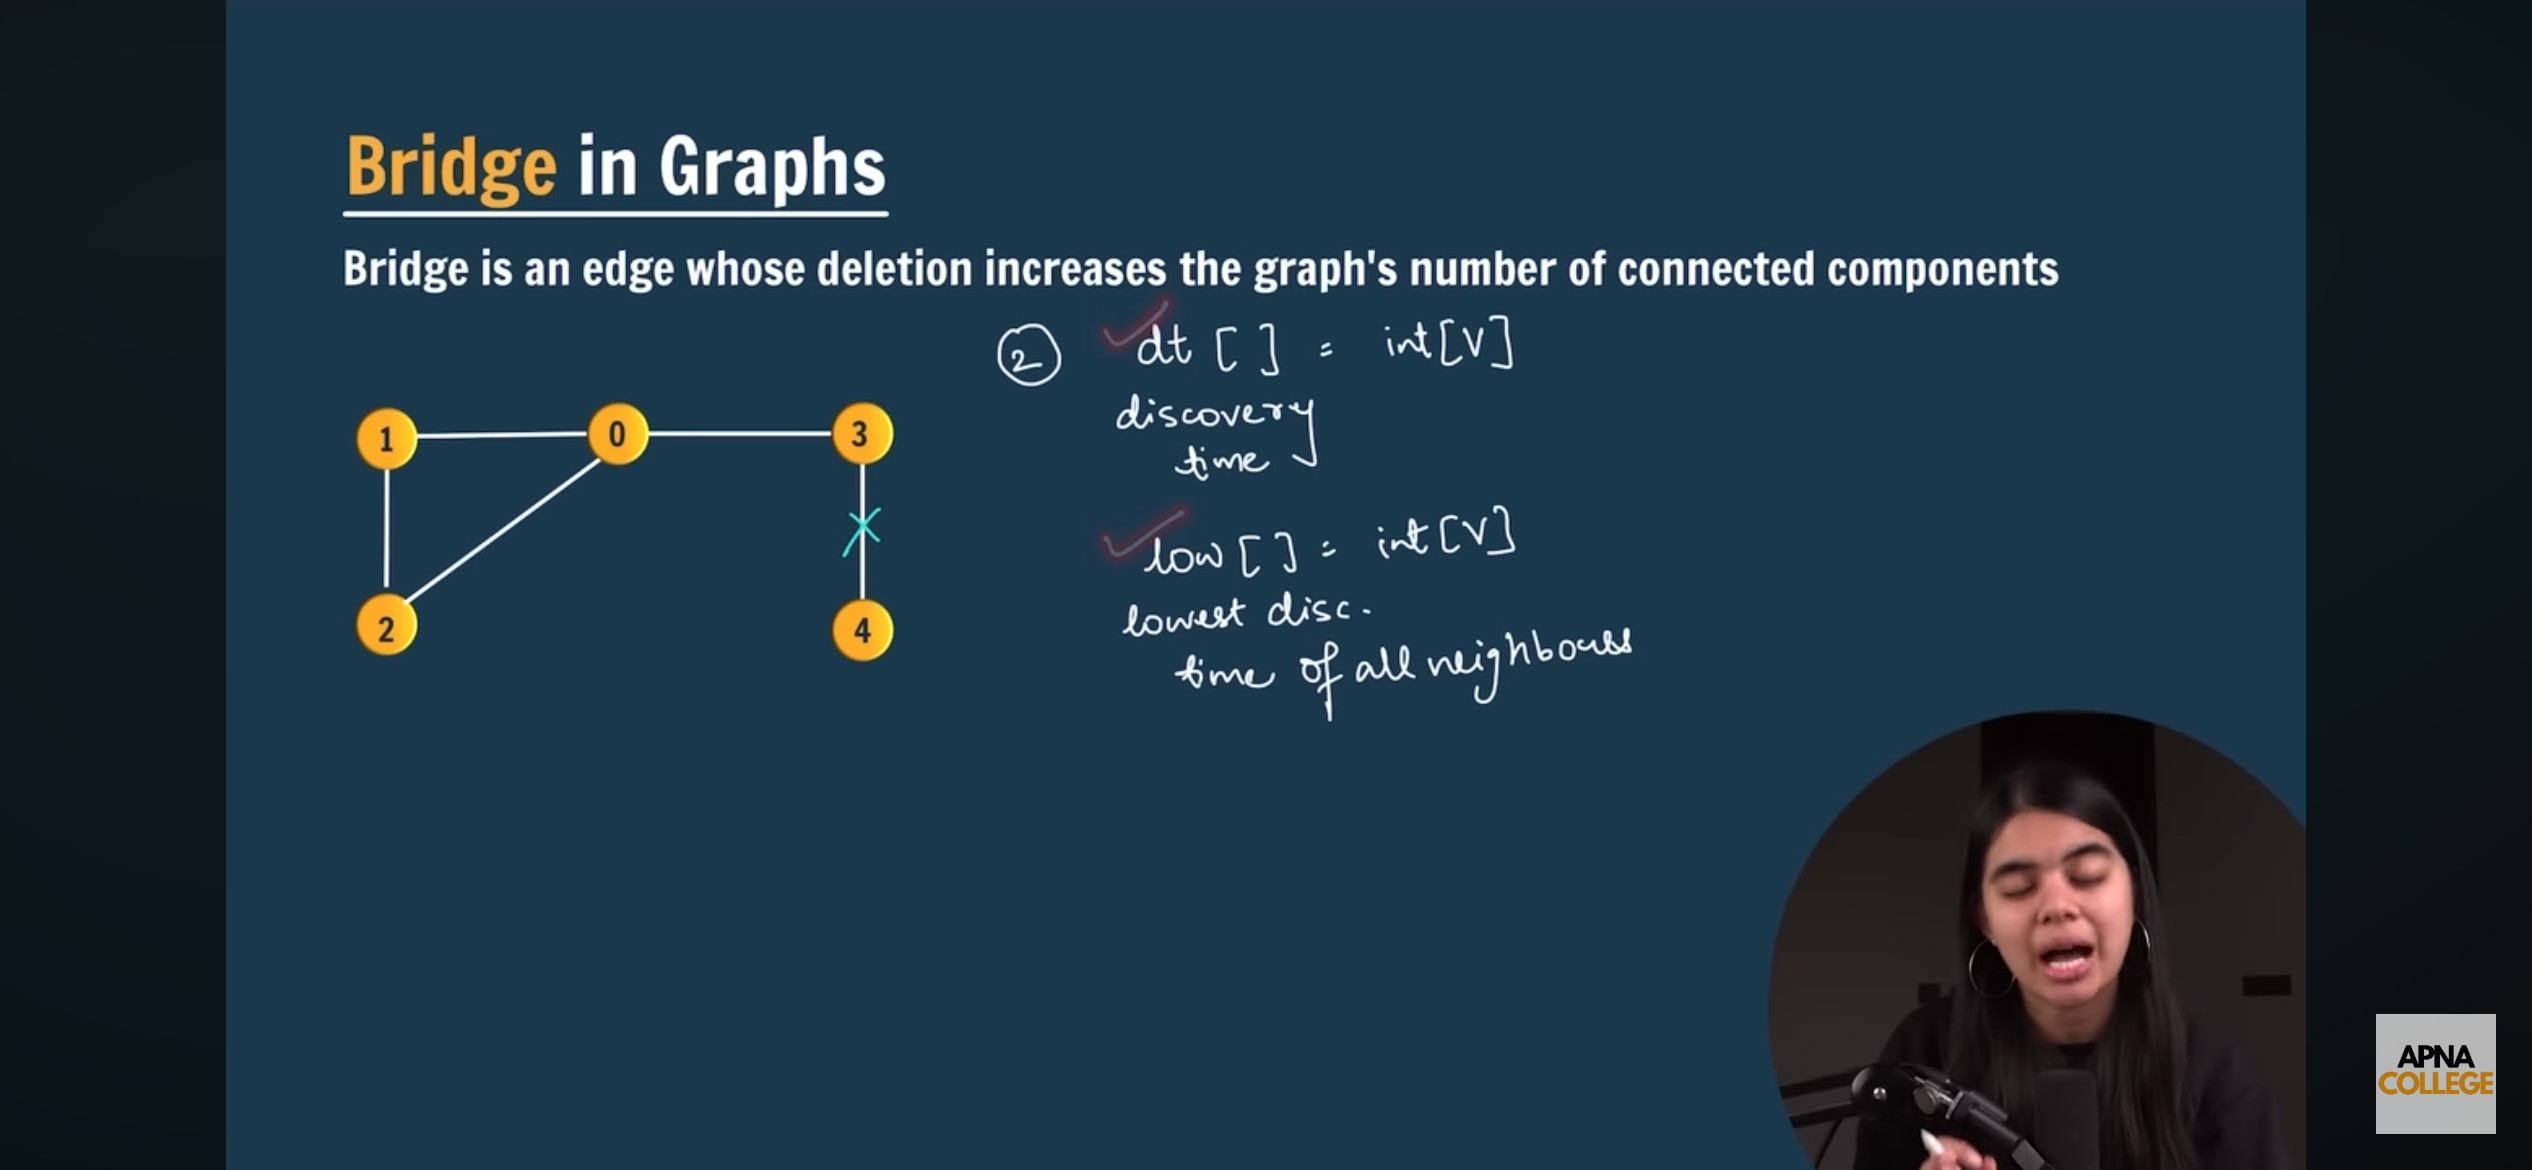 Bridge in Graphs
Bridge is an edge whose deletion increases the graph's number of connected components
2 dt [ ] = int[V]
discovery
time
low [ ] = int[V]
lowest disc.
time of all neighbours
1 0 3
2 4
APNA
COLLEGE